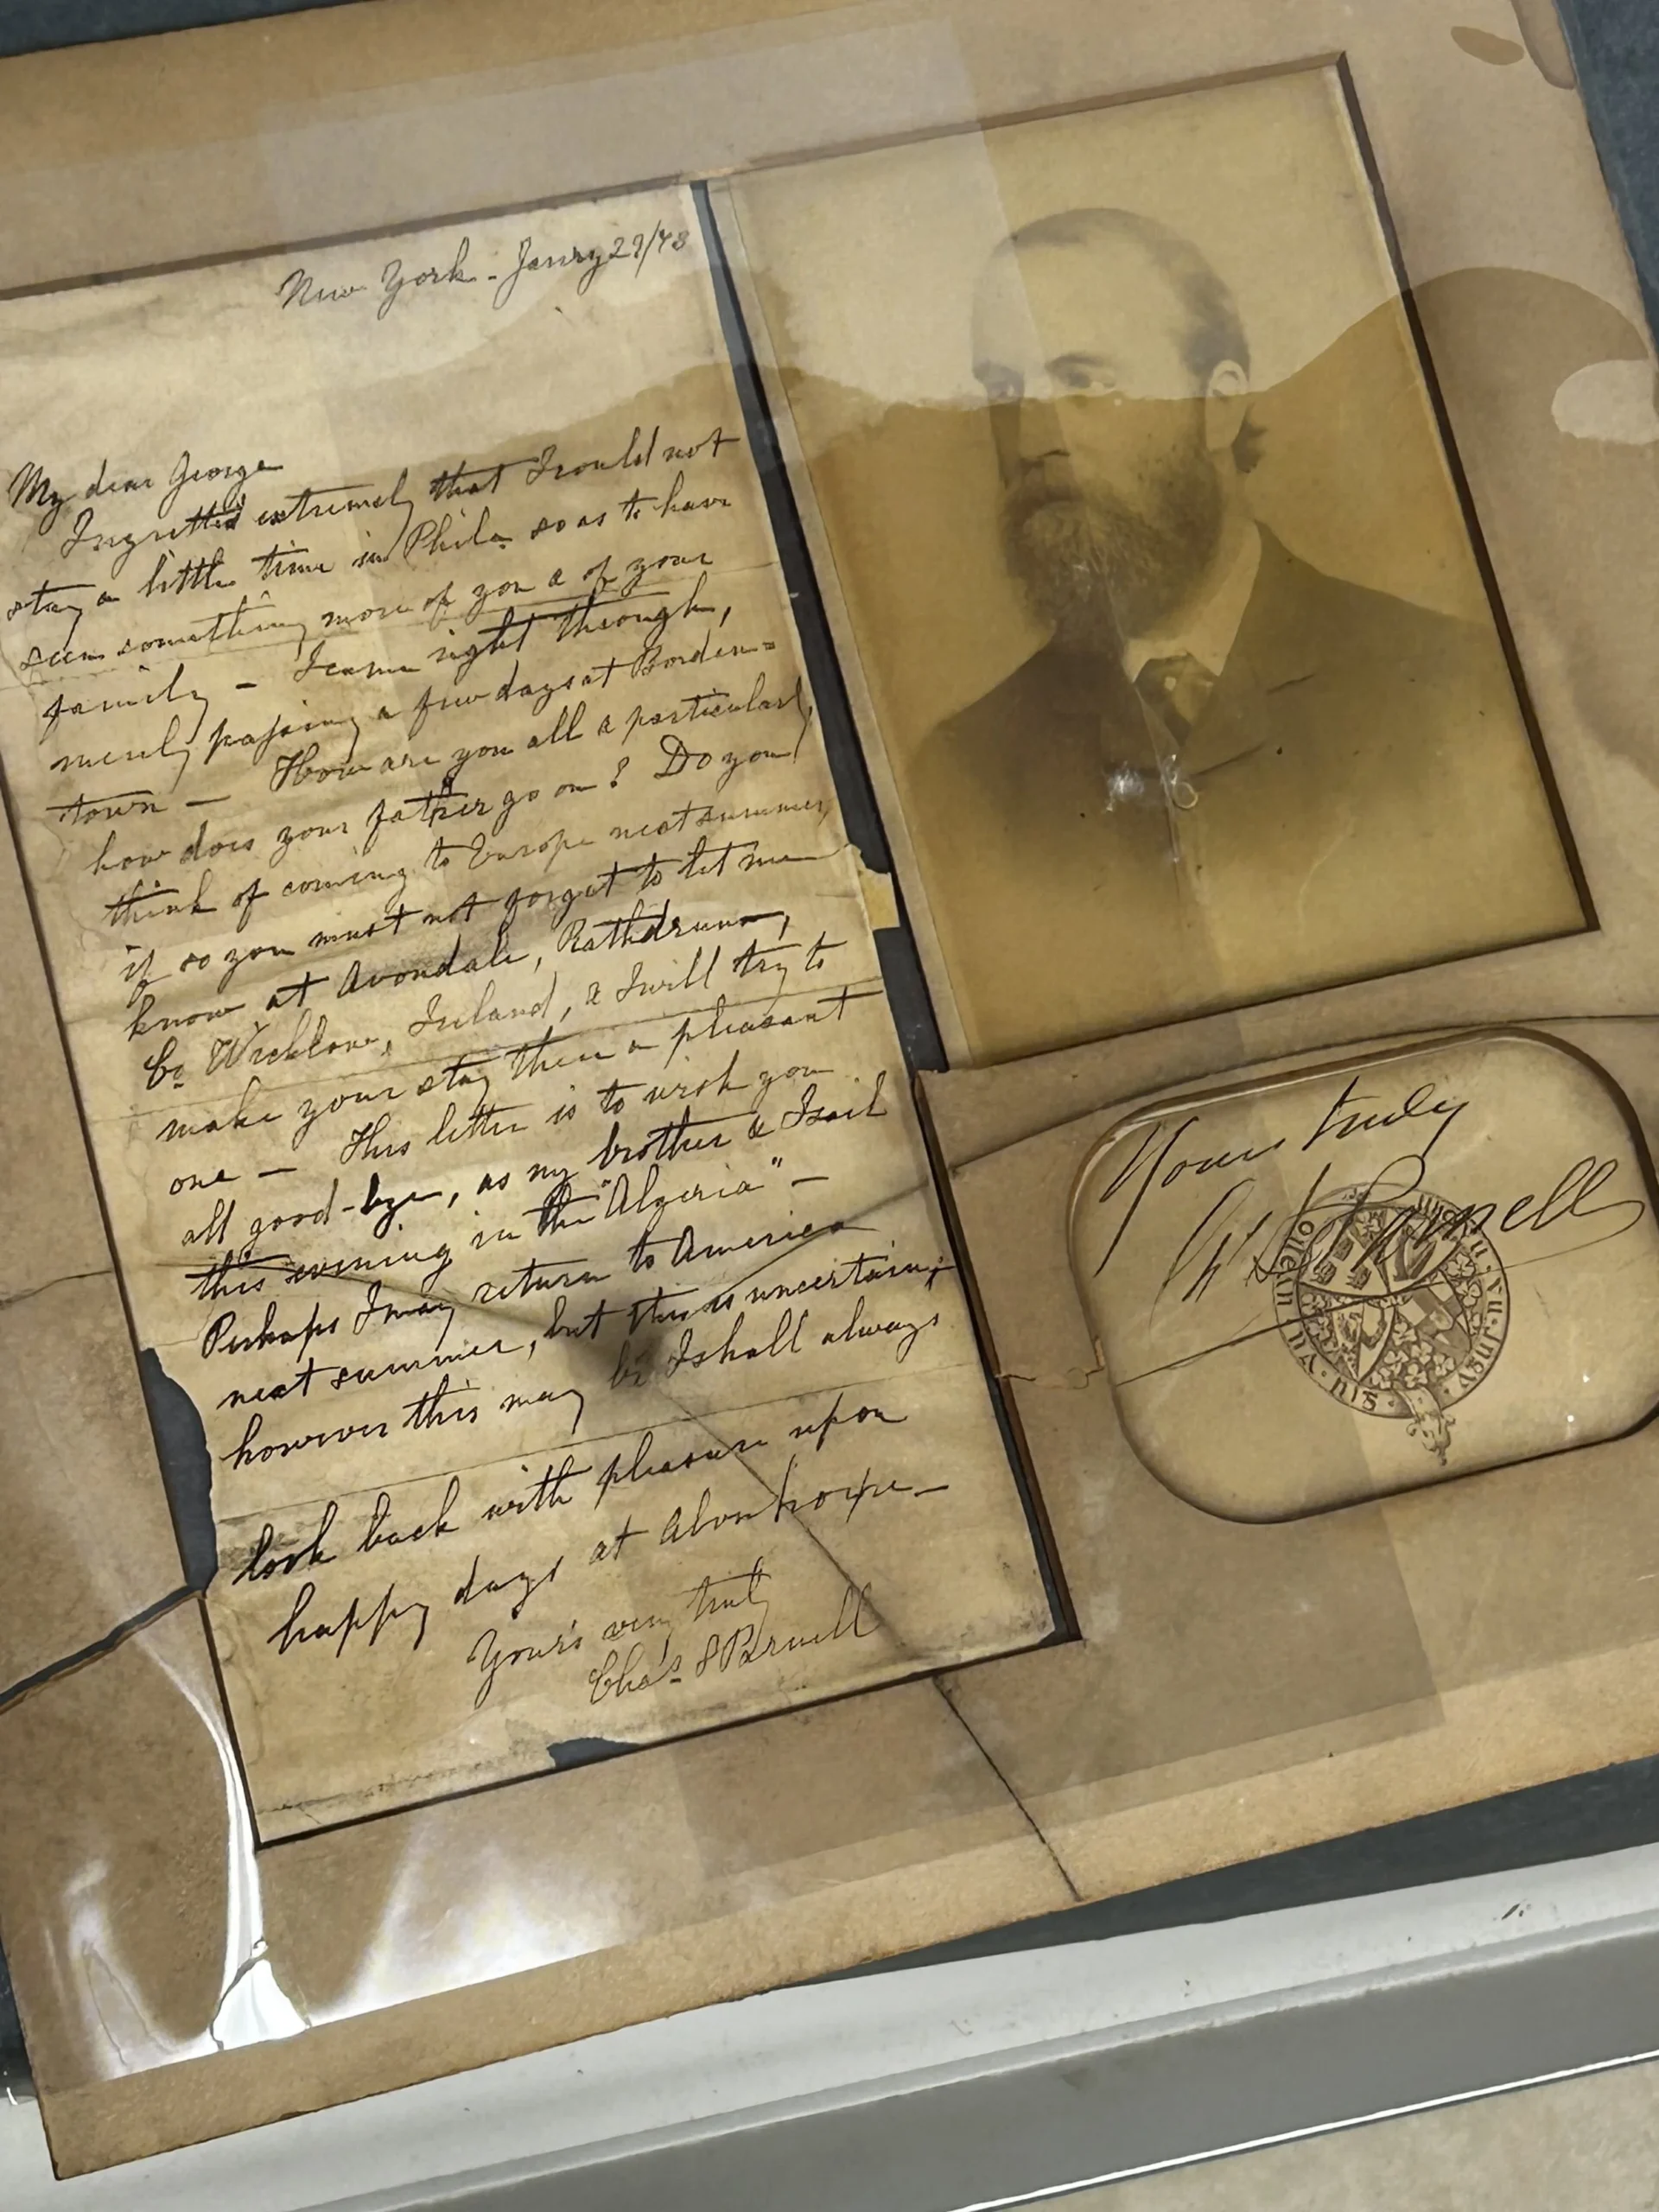 New York - Janry 29/73
My dear George
I regretted extremely that I could not
stay a little time in Phila. so as to have
seen something more of you & of your
family - I came right through,
merely passing a few days at Borden=
town - How are you all & particularly
how does your father go on? Do you
think of coming to Europe next summer,
if so you must not forget to let me
know at Avondale, Rathdrum,
Co Wicklow, Ireland, & I will try to
make your stay there a pleasant
one - This letter is to wish you
all good-bye, as my brother & I sail
this evening in the "Algeria" -
Perhaps I may return to America
next summer, but this is uncertain,
however this may be I shall always
look back with pleasure upon
happy days at
Yours very truly
Chas. S Parnell
Yours truly
Ch S Parnell